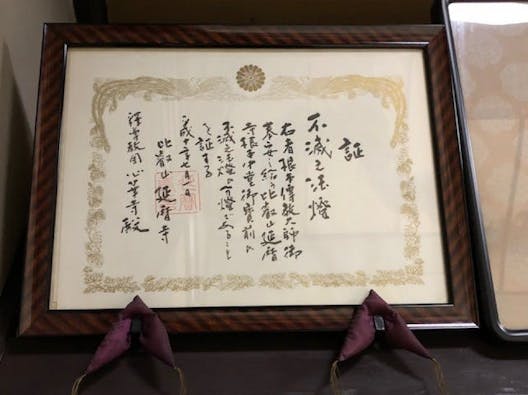 証
不滅之法燈
右者根本傳教大師御
慕安之給ふ比叡山延暦
寺根本中堂御宝前に
不滅之法燈の分燈たること
を証する
平成十二年七月一日
比叡山延暦寺
心華寺殿